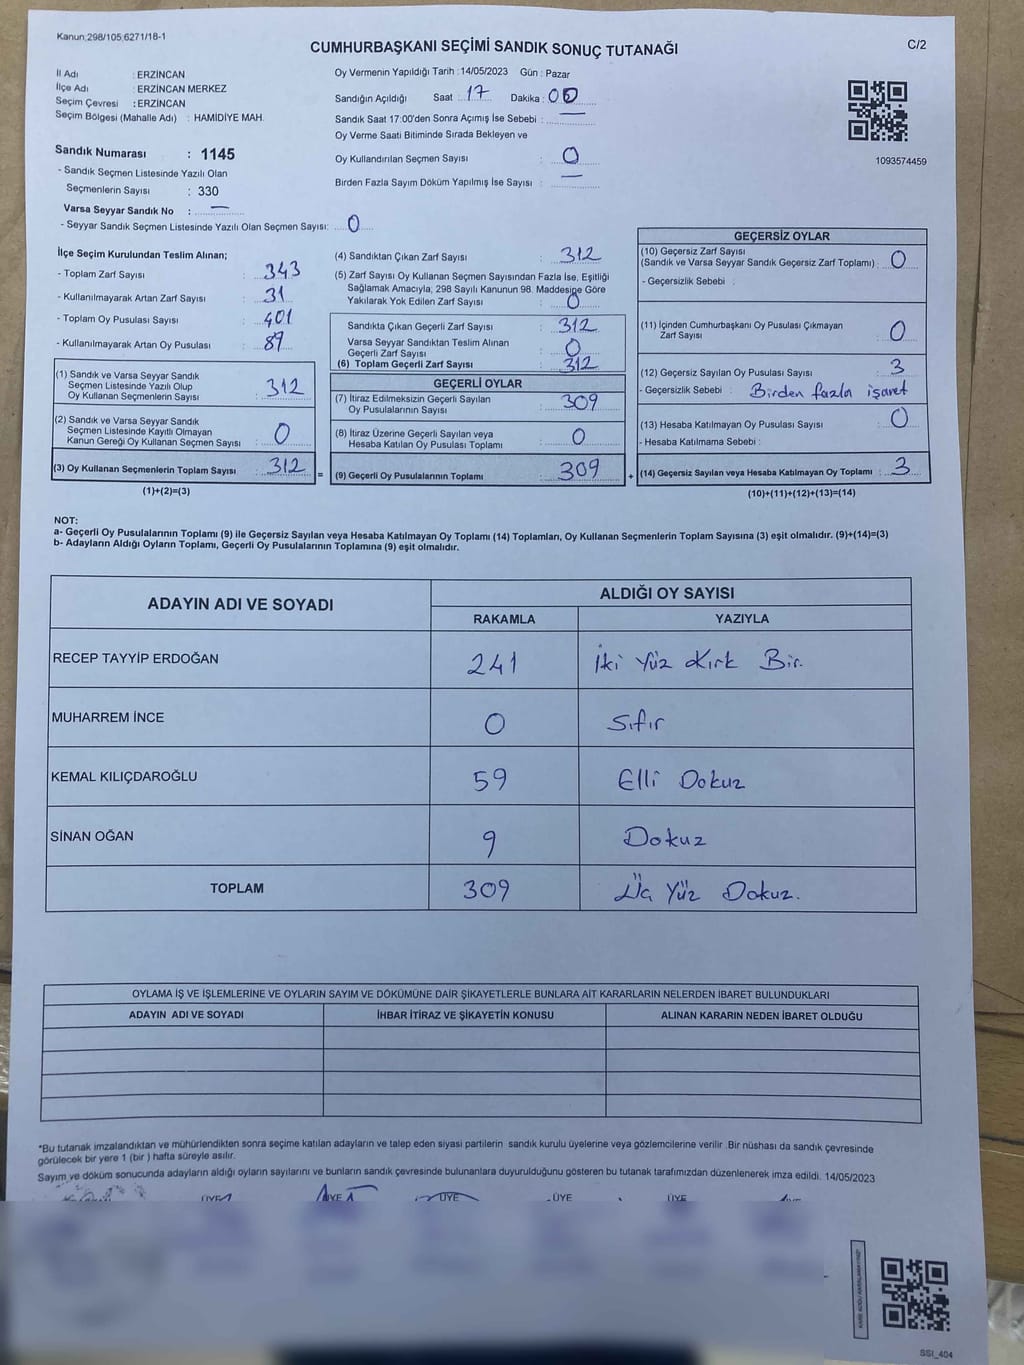 Kanun:298/105,6271/18-1
CUMHURBAŞKANI SEÇİMİ SANDIK SONUÇ TUTANAĞI
C/2
İl Adı : ERZİNCAN
İlçe Adı : ERZİNCAN MERKEZ
Seçim Çevresi : ERZİNCAN
Seçim Bölgesi (Mahalle Adı) : HAMİDİYE MAH.
Sandık Numarası : 1145
- Sandık Seçmen Listesinde Yazılı Olan
Seçmenlerin Sayısı : 330
Varsa Seyyar Sandık No : —
- Seyyar Sandık Seçmen Listesinde Yazılı Olan Seçmen Sayısı: 0
Oy Vermenin Yapıldığı Tarih :14/05/2023 Gün : Pazar
Sandığın Açıldığı Saat : 17 Dakika : 00
Sandık Saat 17:00'den Sonra Açımış İse Sebebi : —
Oy Verme Saati Bitiminde Sırada Bekleyen ve
Oy Kullandırılan Seçmen Sayısı : 0
Birden Fazla Sayım Döküm Yapılmış İse Sayısı : —
1093574459
İlçe Seçim Kurulundan Teslim Alınan;
- Toplam Zarf Sayısı : 343
- Kullanılmayarak Artan Zarf Sayısı : 31
- Toplam Oy Pusulası Sayısı : 401
- Kullanılmayarak Artan Oy Pusulası : 89
(1) Sandık ve Varsa Seyyar Sandık
Seçmen Listesinde Yazılı Olup
Oy Kullanan Seçmenlerin Sayısı : 312
(2) Sandık ve Varsa Seyyar Sandık
Seçmen Listesinde Kayıtlı Olmayan
Kanun Gereği Oy Kullanan Seçmen Sayısı : 0
(3) Oy Kullanan Seçmenlerin Toplam Sayısı : 312 =
(1)+(2)=(3)
(4) Sandıktan Çıkan Zarf Sayısı : 312
(5) Zarf Sayısı Oy Kullanan Seçmen Sayısından Fazla İse, Eşitliği
Sağlamak Amacıyla, 298 Sayılı Kanunun 98. Maddesine Göre
Yakılarak Yok Edilen Zarf Sayısı : 0
Sandıkta Çıkan Geçerli Zarf Sayısı : 312
Varsa Seyyar Sandıktan Teslim Alınan
Geçerli Zarf Sayısı : 0
(6) Toplam Geçerli Zarf Sayısı : 312
GEÇERLİ OYLAR
(7) İtiraz Edilmeksizin Geçerli Sayılan
Oy Pusulalarının Sayısı : 309
(8) İtiraz Üzerine Geçerli Sayılan veya
Hesaba Katılan Oy Pusulası Toplamı : 0
(9) Geçerli Oy Pusulalarının Toplamı : 309 +
GEÇERSİZ OYLAR
(10) Geçersiz Zarf Sayısı
(Sandık ve Varsa Seyyar Sandık Geçersiz Zarf Toplamı) : 0
- Geçersizlik Sebebi :
(11) İçinden Cumhurbaşkanı Oy Pusulası Çıkmayan
Zarf Sayısı : 0
(12) Geçersiz Sayılan Oy Pusulası Sayısı : 3
- Geçersizlik Sebebi : Birden fazla işaret
(13) Hesaba Katılmayan Oy Pusulası Sayısı : 0
- Hesaba Katılmama Sebebi :
(14) Geçersiz Sayılan veya Hesaba Katılmayan Oy Toplamı : 3
(10)+(11)+(12)+(13)=(14)
NOT:
a- Geçerli Oy Pusulalarının Toplamı (9) ile Geçersiz Sayılan veya Hesaba Katılmayan Oy Toplamı (14) Toplamları, Oy Kullanan Seçmenlerin Toplam Sayısına (3) eşit olmalıdır. (9)+(14)=(3)
b- Adayların Aldığı Oyların Toplamı, Geçerli Oy Pusulalarının Toplamına (9) eşit olmalıdır.
ADAYIN ADI VE SOYADI ALDIĞI OY SAYISI
RAKAMLA YAZIYLA
RECEP TAYYİP ERDOĞAN 241 İki Yüz Kırk Bir.
MUHARREM İNCE 0 Sıfır
KEMAL KILIÇDAROĞLU 59 Elli Dokuz
SİNAN OĞAN 9 Dokuz
TOPLAM 309 Üç Yüz Dokuz.
OYLAMA İŞ VE İŞLEMLERİNE VE OYLARIN SAYIM VE DÖKÜMÜNE DAİR ŞİKAYETLERLE BUNLARA AİT KARARLARIN NELERDEN İBARET BULUNDUKLARI
ADAYIN ADI VE SOYADI İHBAR İTİRAZ VE ŞİKAYETİN KONUSU ALINAN KARARIN NEDEN İBARET OLDUĞU
*Bu tutanak imzalandıktan ve mühürlendikten sonra seçime katılan adayların ve talep eden siyasi partilerin sandık kurulu üyelerine veya gözlemcilerine verilir .Bir nüshası da sandık çevresinde
görülecek bir yere 1 (bir ) hafta süreyle asılır.
Sayım ve döküm sonucunda adayların aldığı oyların sayılarını ve bunların sandık çevresinde bulunanlara duyurulduğunu gösteren bu tutanak tarafımızdan düzenlenerek imza edildi. 14/05/2023
ÜYE ÜYE ÜYE ÜYE ÜYE
SSI_404